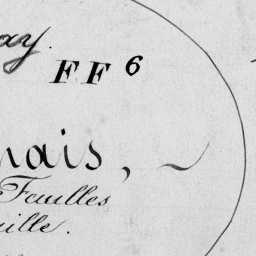 ay.
F F 6
nais,
Feuilles
uille.